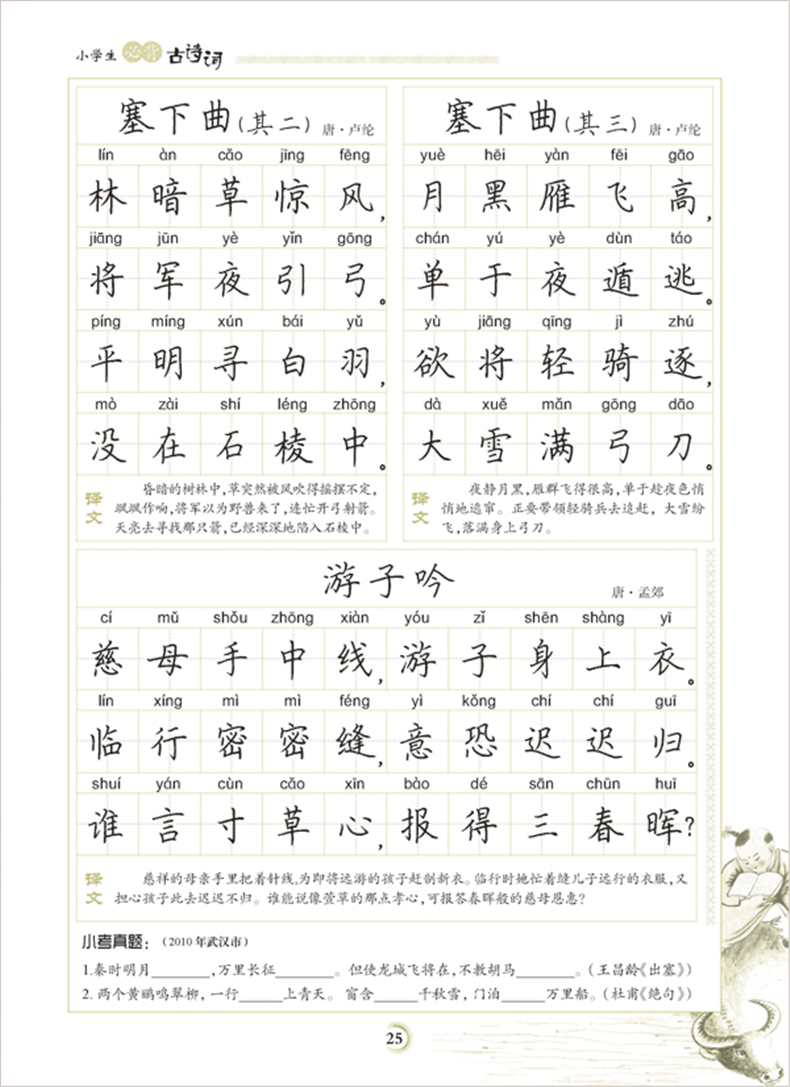 小学生必背古诗词
塞下曲(其二) 唐·卢纶
lín àn cǎo jīng fēng
林暗草惊风,
jiāng jūn yè yǐn gōng
将军夜引弓。
píng míng xún bái yǔ
平明寻白羽,
mò zài shí léng zhōng
没在石棱中。
译文
昏暗的树林中,草突然被风吹得摇摆不定,
飒飒作响,将军以为野兽来了,连忙开弓射箭。
天亮去寻找那只箭,已经深深地陷入石棱中。
塞下曲(其三) 唐·卢纶
yuè hēi yàn fēi gāo
月黑雁飞高,
chán yú yè dùn táo
单于夜遁逃。
yù jiāng qīng jì zhú
欲将轻骑逐,
dà xuě mǎn gōng dāo
大雪满弓刀。
译文
夜静月黑,雁群飞得很高,单于趁夜色悄
悄地逃窜。正要带领轻骑兵去追赶,大雪纷
飞,落满身上弓刀。
游子吟
唐·孟郊
cí mǔ shǒu zhōng xiàn yóu zǐ shēn shàng yī
慈母手中线,游子身上衣。
lín xíng mì mì féng yì kǒng chí chí guī
临行密密缝,意恐迟迟归。
shuí yán cùn cǎo xīn bào dé sān chūn huī
谁言寸草心,报得三春晖?
译文
慈祥的母亲手里把着针线,为即将远游的孩子赶制新衣。临行时她忙着缝儿子远行的衣服,又
担心孩子此去迟迟不归。谁能说像萱草的那点孝心,可报答春晖般的慈母恩惠?
小考真题:(2010年武汉市)
1.秦时明月________,万里长征________。但使龙城飞将在,不教胡马________。(王昌龄《出塞》)
2. 两个黄鹂鸣翠柳,一行______上青天。窗含______千秋雪,门泊______万里船。(杜甫《绝句》)
25